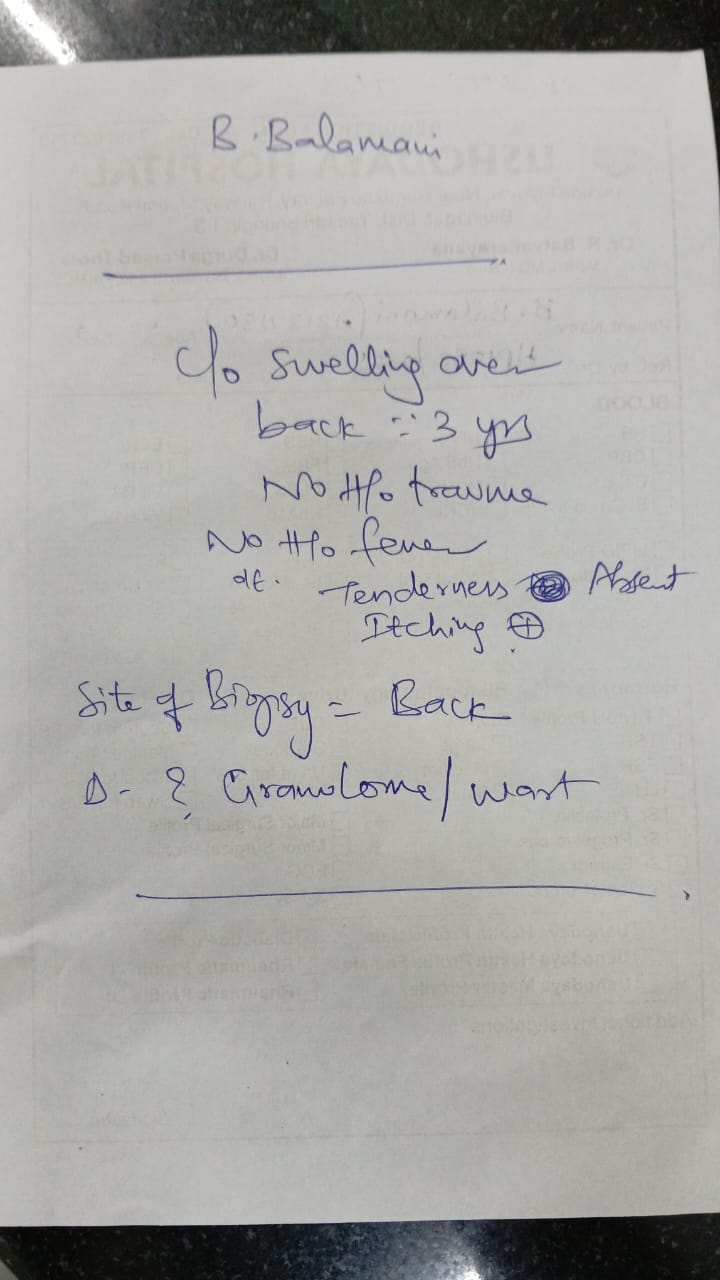 B. Balamani
c/o swelling over
back :: 3 yrs
No H/o trauma
No H/o fever
Tenderness Absent
Itching ⊕
Site of Biopsy = Back
D - ? Granuloma / wart